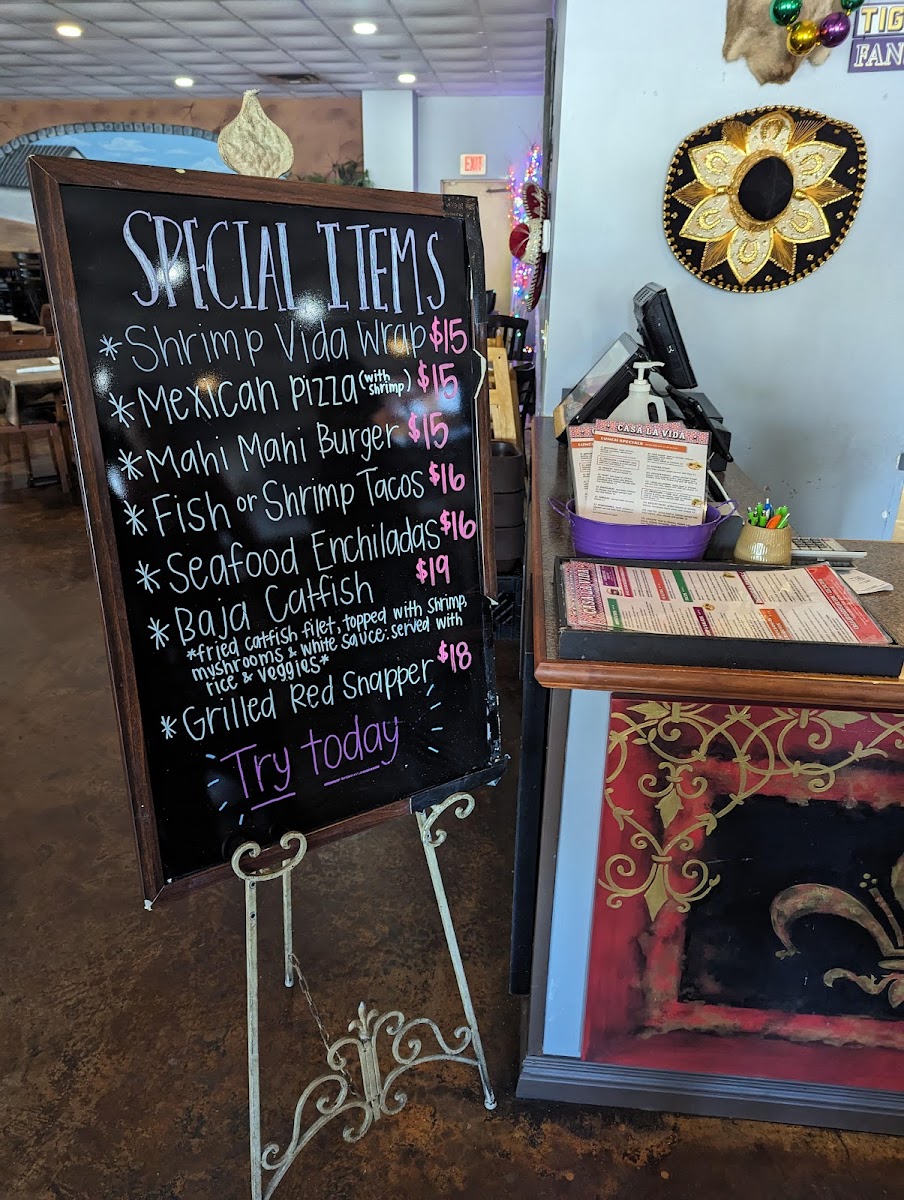 TIG
FAN
EXIT
SPECIAL ITEMS
*Shrimp Vida Wrap $15
*Mexican Pizza (with shrimp) $15
*Mahi Mahi Burger $15
*Fish or Shrimp Tacos $16
*Seafood Enchiladas $16
*Baja Catfish $19
*fried catfish filet, topped with shrimp,
mushrooms & white sauce; served with
rice & veggies*
*Grilled Red Snapper $18
Try today
CASA LA VIDA
LUNCH SPECIALS
CASA LA VIDA